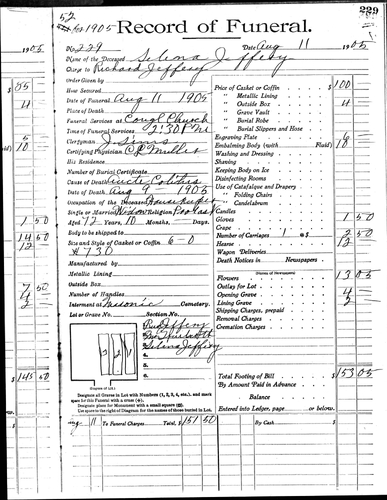 52
229
1905 Record of Funeral.
No. 229 Date Aug 11 1905
Name of the Deceased Selina Jeffery
Charge to Richard Jeffery
Order Given by
Hour Secured
Date of Funeral Aug 11 1905
Place of Death
Funeral Services at Congl Church
Time of Funeral Services 2:30 P M
Clergyman J Sims
Certifying Physician
His Residence
Number of Burial Certificate
Cause of Death
Date of Death Aug 9 1905
Occupation of the Deceased Housekeeper
Single or Married Widow Religion Protast
Aged 72 Years, 10 Months, Days.
Body to be shipped to
Size and Style of Casket or Coffin 6-0
#730
Manufactured by
Metallic Lining
Outside Box
Number of Handles
Interment at Masonic Cemetery.
Lot or Grave No. Section No.
Selina Jeffery
(Diagram of Lot.)
Designate all Graves in Lot with Numbers (1, 2, 3, 4, etc.), and mark
space for this Funeral with a cross (+).
Designate place for Monument with a small square (□).
Use space to the right of Diagram for the names of those buried in Lot.
Aug 11 To Funeral Charges Total, $ 151 50
Price of Casket or Coffin $ 100
" Metallic Lining
" Outside Box 4
" Grave Vault
" Burial Robe
" Burial Slippers and Hose
Engraving Plate
Embalming Body (with Fluid) 10
Washing and Dressing
Shaving
Keeping Body on Ice
Disinfecting Rooms
Use of Catafalque and Drapery
" Folding Chairs
" Candelabrum
Candles
Gloves 1 50
Crape
Number of Carriages 1 @ $ 2 50
Hearse 12
Wagon Deliveries
Death Notices in Newspapers
(Names of Newspapers)
Flowers
Outlay for Lot
Opening Grave 4
Lining Grave 2
Shipping Charges, prepaid
Removal Charges
Cremation Charges
Total Footing of Bill $ 153 05
By Amount Paid in Advance
Balance
Entered into Ledger, page or below.
By Cash $
1905
$ 85
4
5
10
1 50
14 50
12
7 50
4
2
$ 145 50